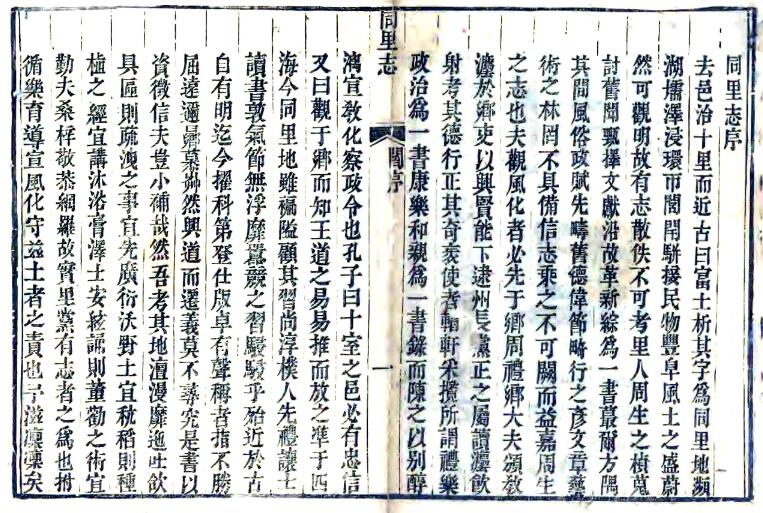 同里志序
去邑治十里而近古曰富土析其字爲同里地頻
湖壖澤浸環市闤闠駢接民物豐阜風土之盛蔚
然可觀明故有志散佚不可考里人周生之楨蒐
討舊聞甄擇文獻沿故革新綜爲一書蕞爾方隅
其間風俗政賦先疇舊德偉節畸行之彦文章藝
術之林罔不具備信志乘之不可闕而益嘉周生
之志也夫觀風化者必先于鄉周禮鄉大夫頒教
灋於鄉吏以興賢能下逮州長黨正之屬讀灋飲
射考其德行正其奇衺使者輶軒采攬所謂禮樂
政治爲一書康樂和親爲一書錄而陳之以别醇
同里志
閻序
一
漓宣教化察政令也孔子曰十室之邑必有忠信
又曰觀于鄉而知王道之易易推而放之準于四
海今同里地雖褊隘顧其習尚淳樸人先禮讓士
讀書敦氣節無浮靡囂競之習駸駸乎殆近於古
自有明迄今擢科第登仕版卓有聲稱者指不勝
屈遠邇嚮慕蒸然興道而遷義莫不尋究是書以
資徵信夫豈小補哉然吾考其地澶漫靡迤吐歙
具區則疏洩之事宜先廣衍沃野土宜秔稻則種
植之經宜講沐浴膏澤士安絃誦則董勸之術宜
勤夫桑梓敬恭網羅故實里黨有志者之爲也拊
循樂育導宣風化守兹土者之責也予滋凜凜矣